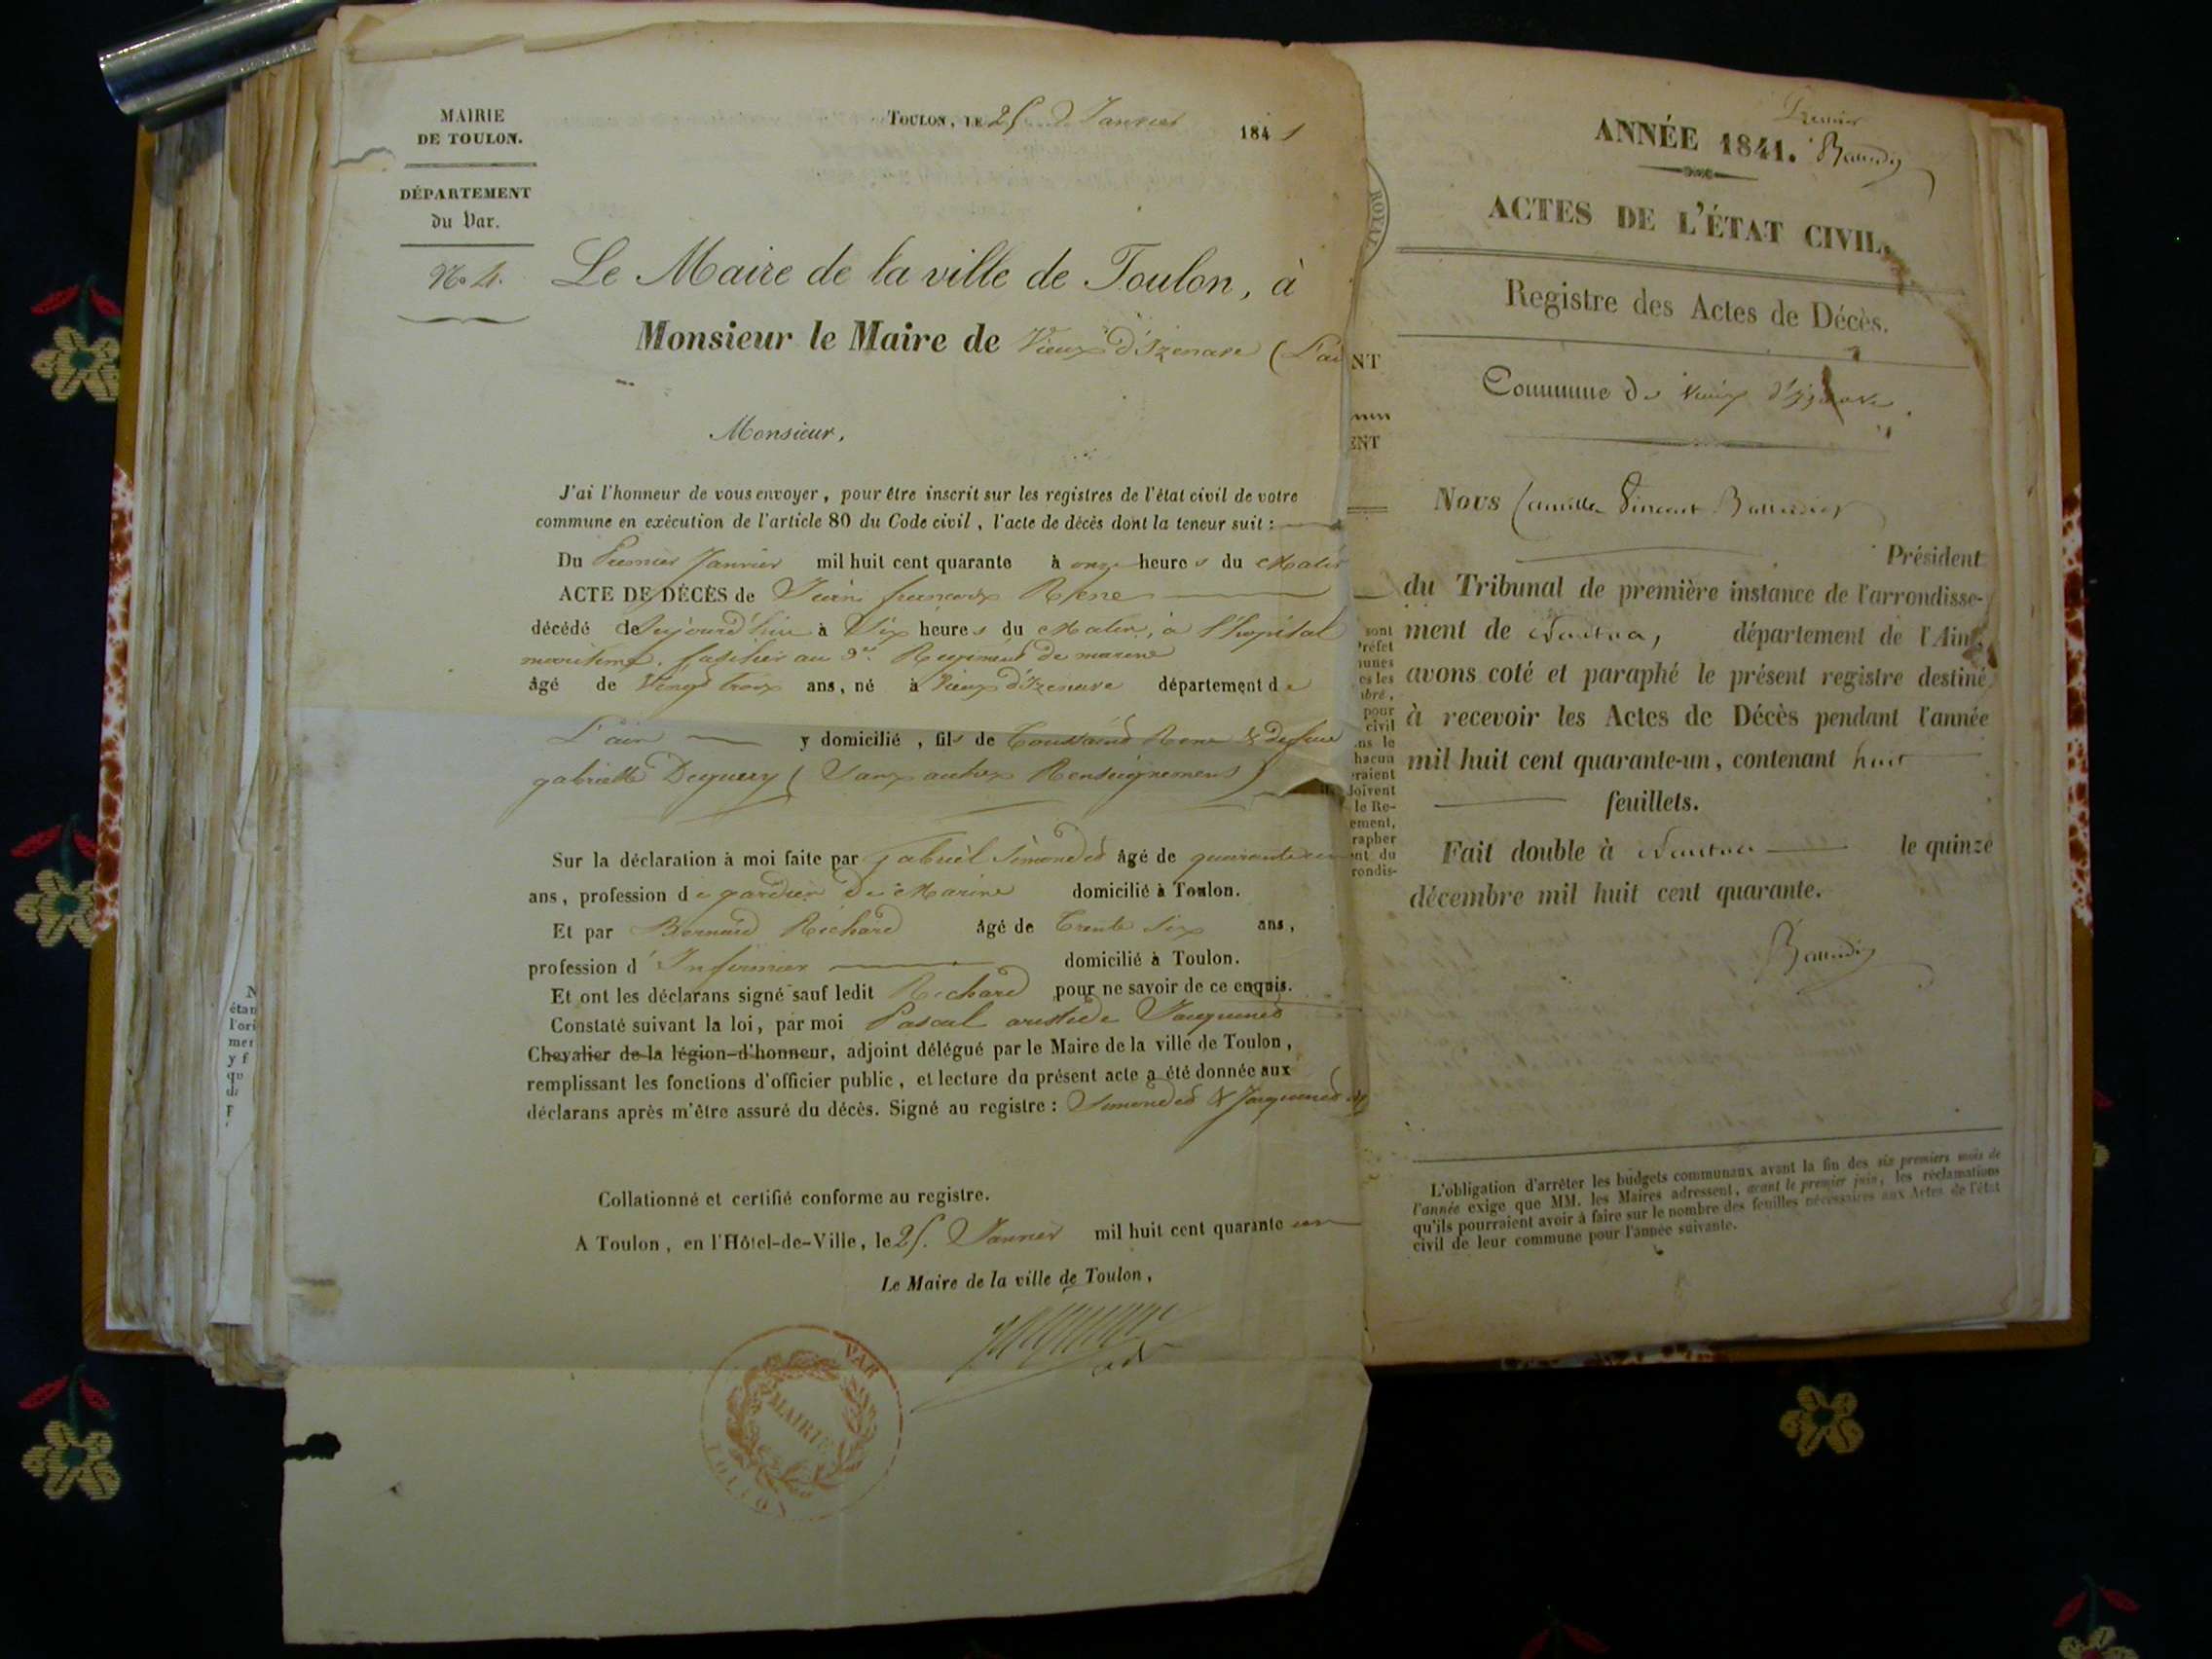 MAIRIE
DE TOULON.
DÉPARTEMENT
du Var.
No 4.
TOULON, LE 25 Janvier 1841
Le Maire de la ville de Toulon, à
Monsieur le Maire de Vieux d'Izenave (L'ai
Monsieur,
J'ai l'honneur de vous envoyer, pour être inscrit sur les registres de l'état civil de votre
commune en exécution de l'article 80 du Code civil, l'acte de décès dont la teneur suit :
Du Premier Janvier mil huit cent quarante à onze heures du Matin
ACTE DE DÉCÈS de francois Rene
décédé aujourd'hui à Six heures du Matin, a l'hopital
maritime, fusilier au Regiment de marine
âgé de Vingt trois ans, né à Vieux d'Izenave département de
L'ain y domicilié, fils de Toussaind Rene & defeue
gabrielle Deguery (Sans autres Renseignemens)
Sur la déclaration à moi faite par gabriel Simonded âgé de quarante
ans, profession de gardien De Marine domicilié à Toulon.
Et par Bernard Richard âgé de Trente Six ans,
profession d'Infirmier domicilié à Toulon.
Et ont les déclarans signé sauf ledit Richard pour ne savoir de ce enquis.
Constaté suivant la loi, par moi Pascal aristide
Chevalier de la légion-d'honneur, adjoint délégué par le Maire de la ville de Toulon,
remplissant les fonctions d'officier public, et lecture du présent acte a été donnée aux
déclarans après m'être assuré du décès. Signé au registre : Simonded &
Collationné et certifié conforme au registre.
A Toulon, en l'Hôtel-de-Ville, le 25. Janvier mil huit cent quarante un
Le Maire de la ville de Toulon,
VAR
MAIRIE
TOULON
ROYAL
NT
ENT
sont
réfet
ibré,
pour
civil
ns le
hacun
raient
doivent
le Re-
ement,
rapher
nt du
rondis-
N
étan
l'ori
mer
y f
qu
Premier
ANNÉE 1841.
ACTES DE L'ÉTAT CIVIL.
Registre des Actes de Décès.
Commune de Vieux d'Izenave
Nous Camille Vincent
Président
du Tribunal de première instance de l'arrondisse-
ment de Nantua, département de l'Ain,
avons coté et paraphé le présent registre destiné
à recevoir les Actes de Décès pendant l'année
mil huit cent quarante-un, contenant huit
feuillets.
Fait double à Nantua le quinze
décembre mil huit cent quarante.
L'obligation d'arrêter les budgets communaux avant la fin des six premiers mois de
l'année exige que MM. les Maires adressent, avant le premier juin, les réclamations
qu'ils pourraient avoir à faire sur le nombre des feuilles nécessaires aux Actes de l'état
civil de leur commune pour l'année suivante.